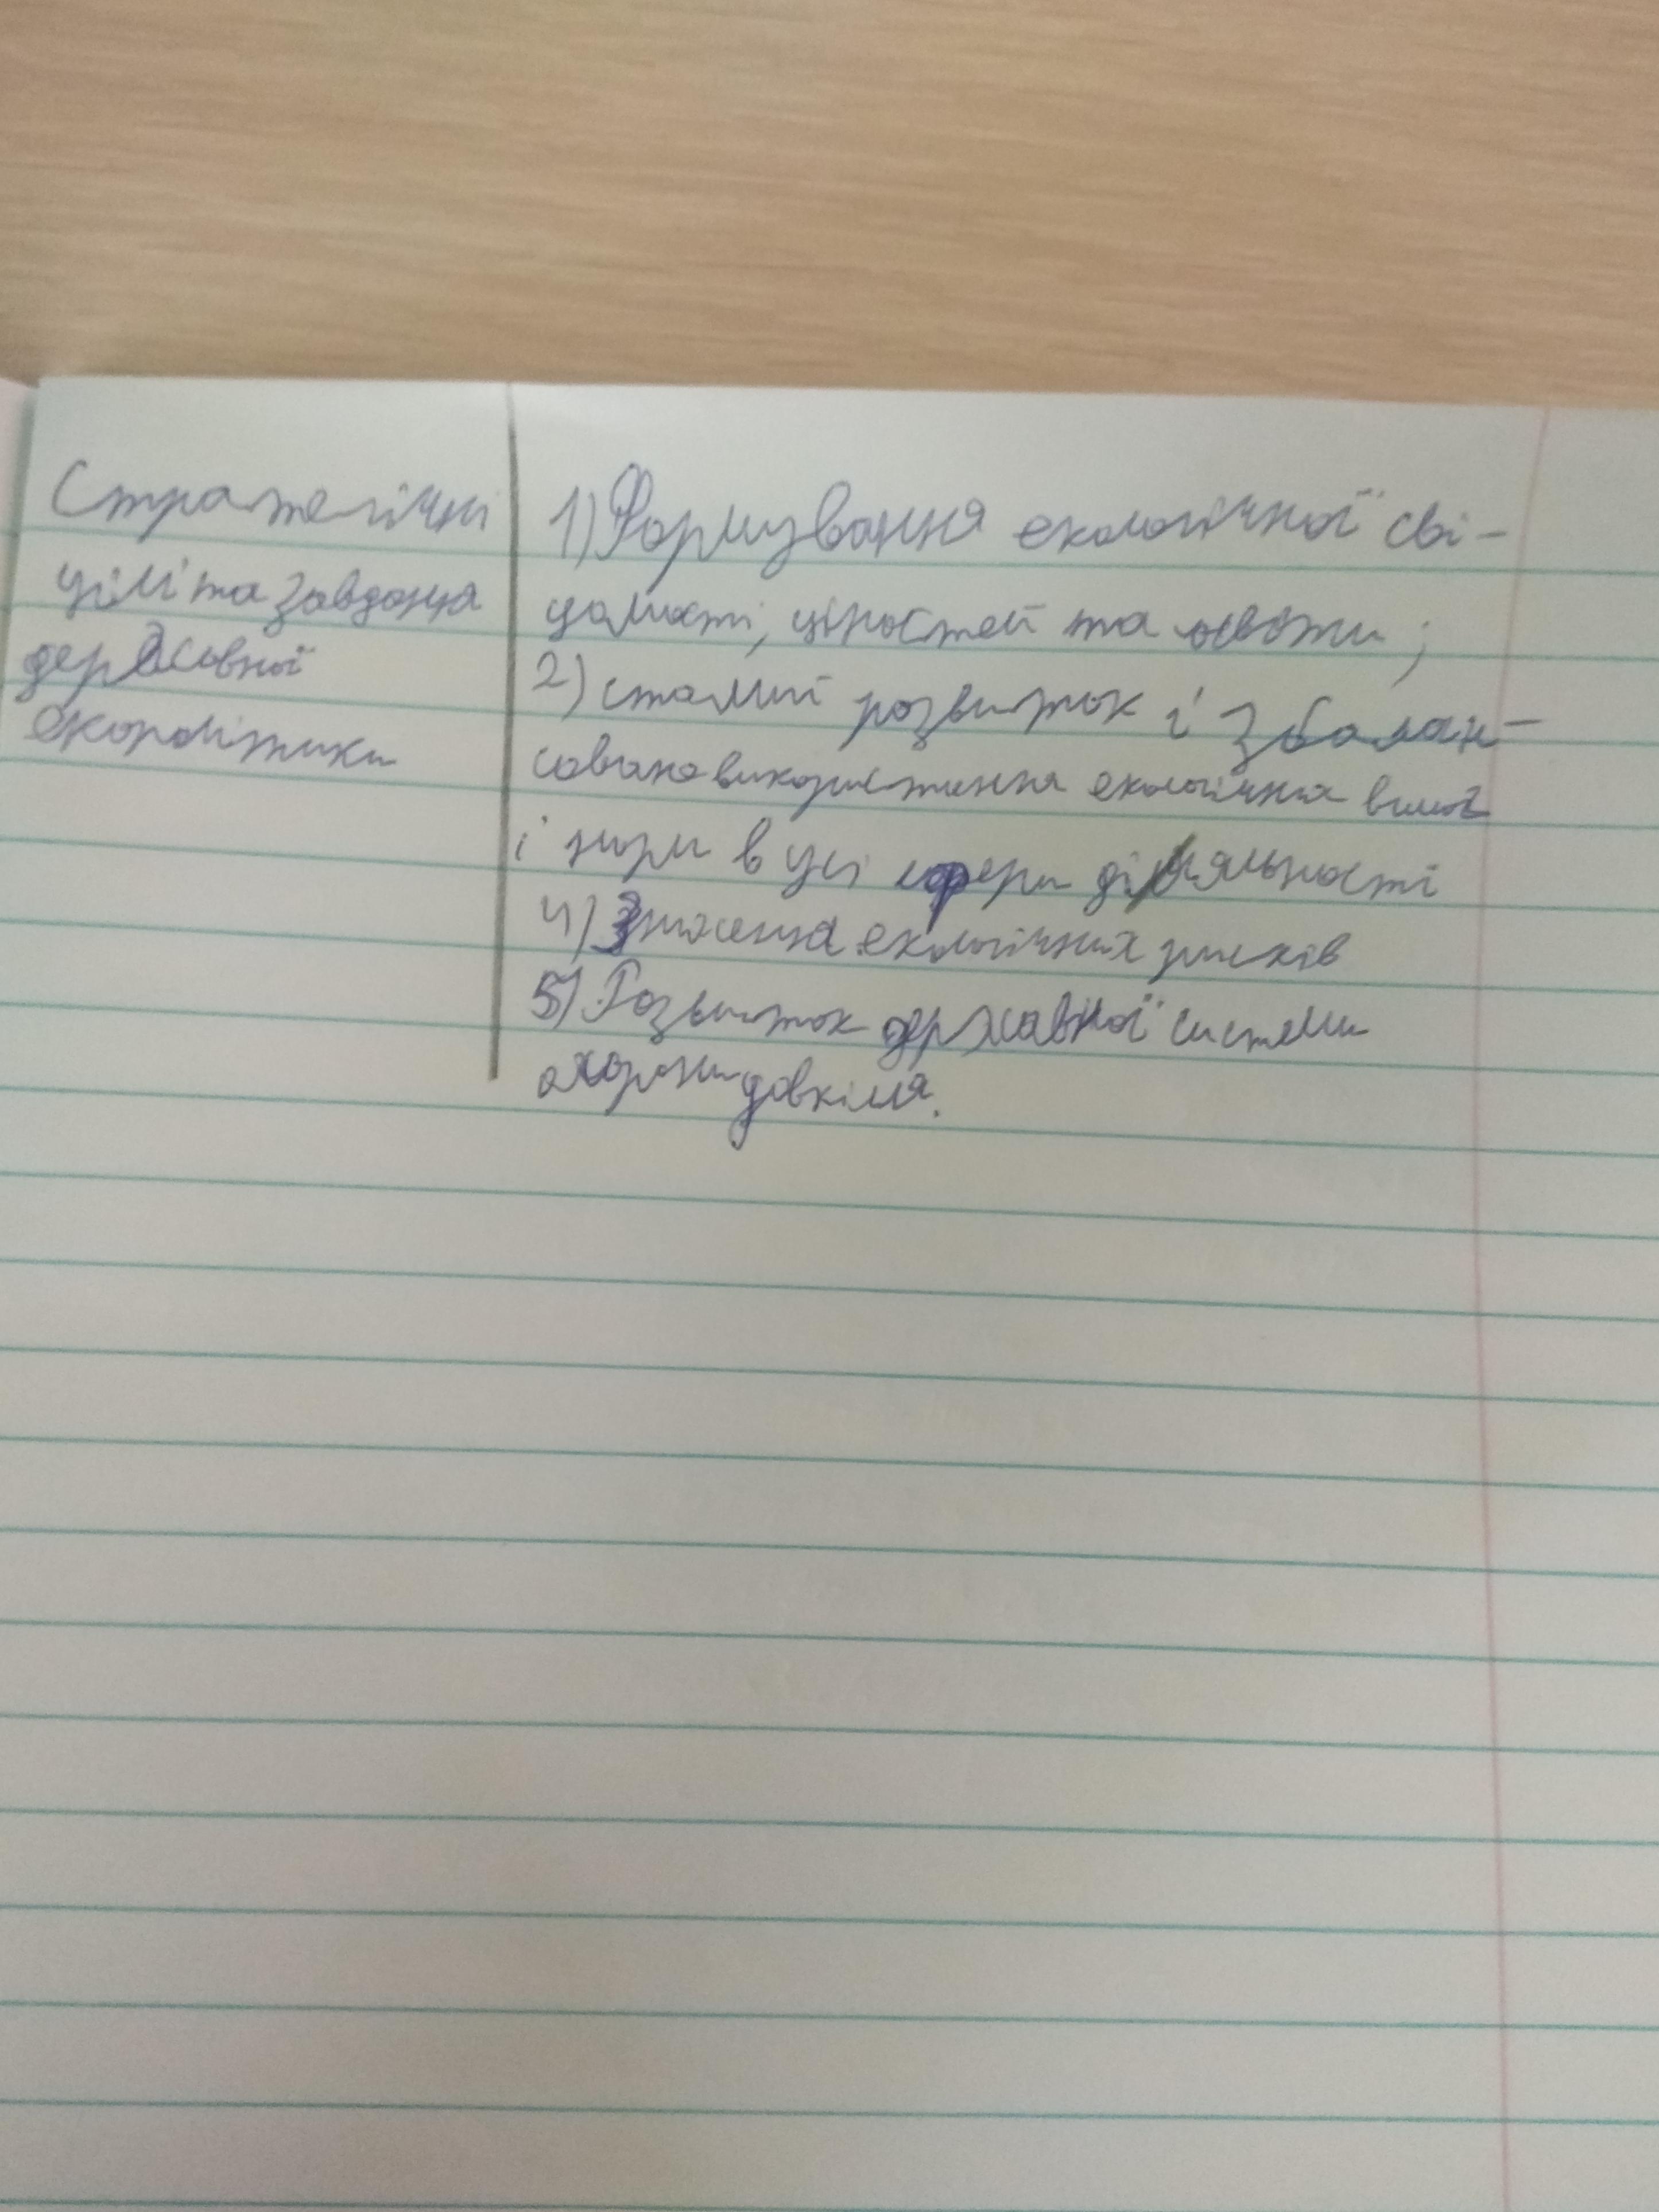 Стратегічні
цілі та завдання
державної
екополітики
1) Формування екологічної сві-
домості, ціностей та освоти;
2) сталий розвиток і збалан-
соване використання екологічних вимог
і норм в усі сфери діяльності
4) Зниження екологічних ризиків
5) Розвиток державної системи
охорони довкілля.